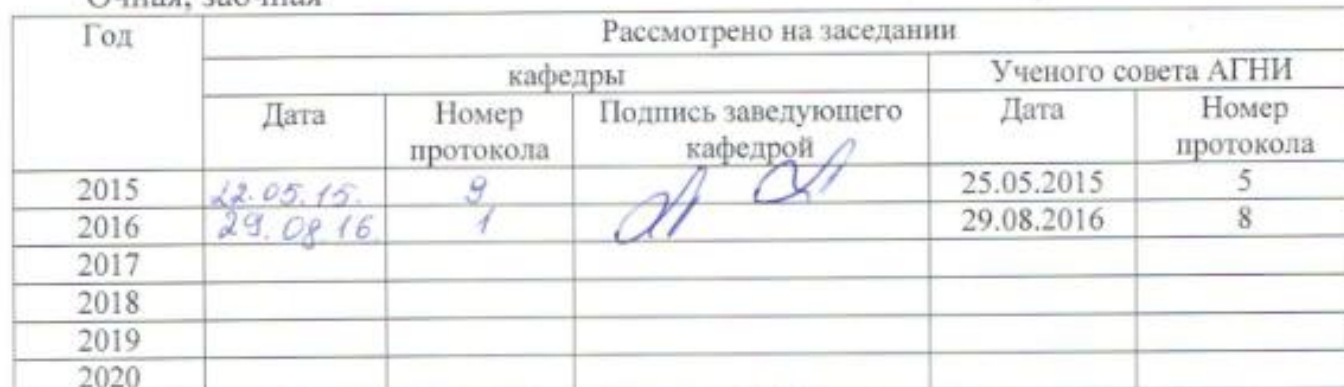 Очная, заочная
Год Рассмотрено на заседании
кафедры Ученого совета АГНИ
Дата Номер Подпись заведующего Дата Номер
протокола кафедрой протокола
2015 22.05.15. 9 25.05.2015 5
2016 29.08.16 1 29.08.2016 8
2017
2018
2019
2020